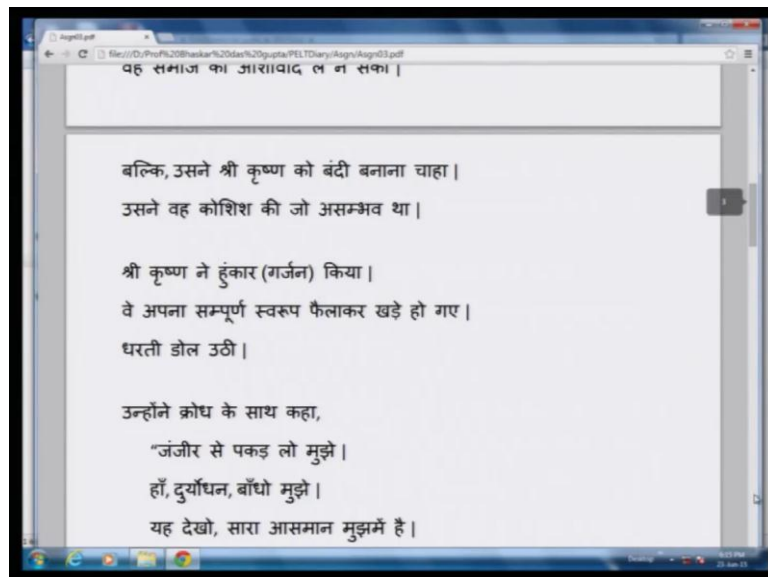 Asgn03.pdf
file:///D:/Prof%20Bhaskar%20das%20gupta/PELTDiary/Asgn/Asgn03.pdf
वह समाज की आशीर्वाद ले न सका |
बल्कि, उसने श्री कृष्ण को बंदी बनाना चाहा |
उसने वह कोशिश की जो असम्भव था |
3
श्री कृष्ण ने हुंकार (गर्जन) किया |
वे अपना सम्पूर्ण स्वरूप फैलाकर खड़े हो गए |
धरती डोल उठी |
उन्होंने क्रोध के साथ कहा,
“जंजीर से पकड़ लो मुझे |
हाँ, दुर्योधन, बाँधो मुझे |
यह देखो, सारा आसमान मुझमें है |
Desktop
6:15 PM
23-Jun-15